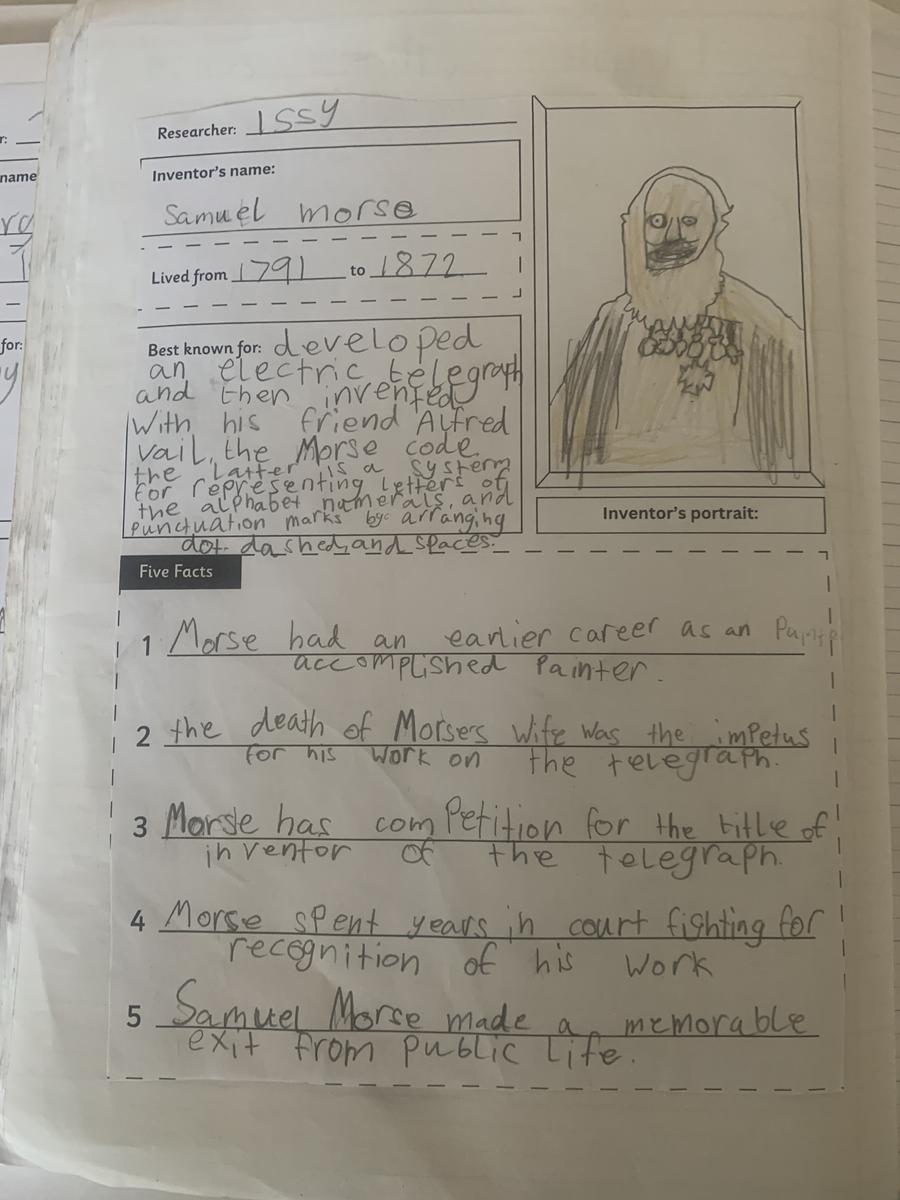 Researcher: Issy
Inventor's name:
Samuel morse
Lived from 1791 to 1872
Best known for: developed
an electric telegraph
and then invented
With his friend Alfred
vail, the Morse code.
the Latter is a systerm
for representing letters of
the alphabet numerals, and
punctuation marks by arranging
dot. dashed, and spaces.
Inventor's portrait:
Five Facts
1 Morse had an earlier career as an
accomplished Painter.
2 the death of Morsers wife was the impetus
for his work on the telegraph.
3 Morse has comPetition for the title of
inventor of the telegraph.
4 Morse spent years in court fighting for
recognition of his work
5 Samuel Morse made a memorable
exit from public life.
r:
name
for: